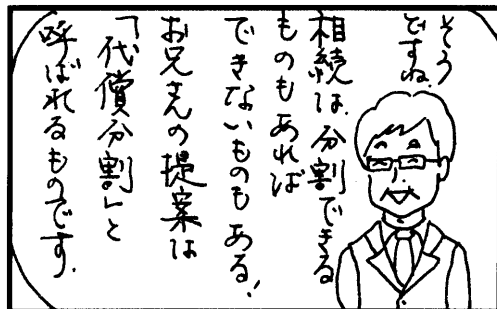 そう
ですね。
相続は、分割できる
ものもあれば
できないものもある！
お兄さんの提案は
「代償分割」と
呼ばれるものです．